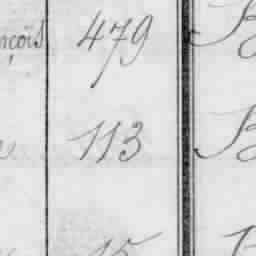 nçois 479 B
113 B
15